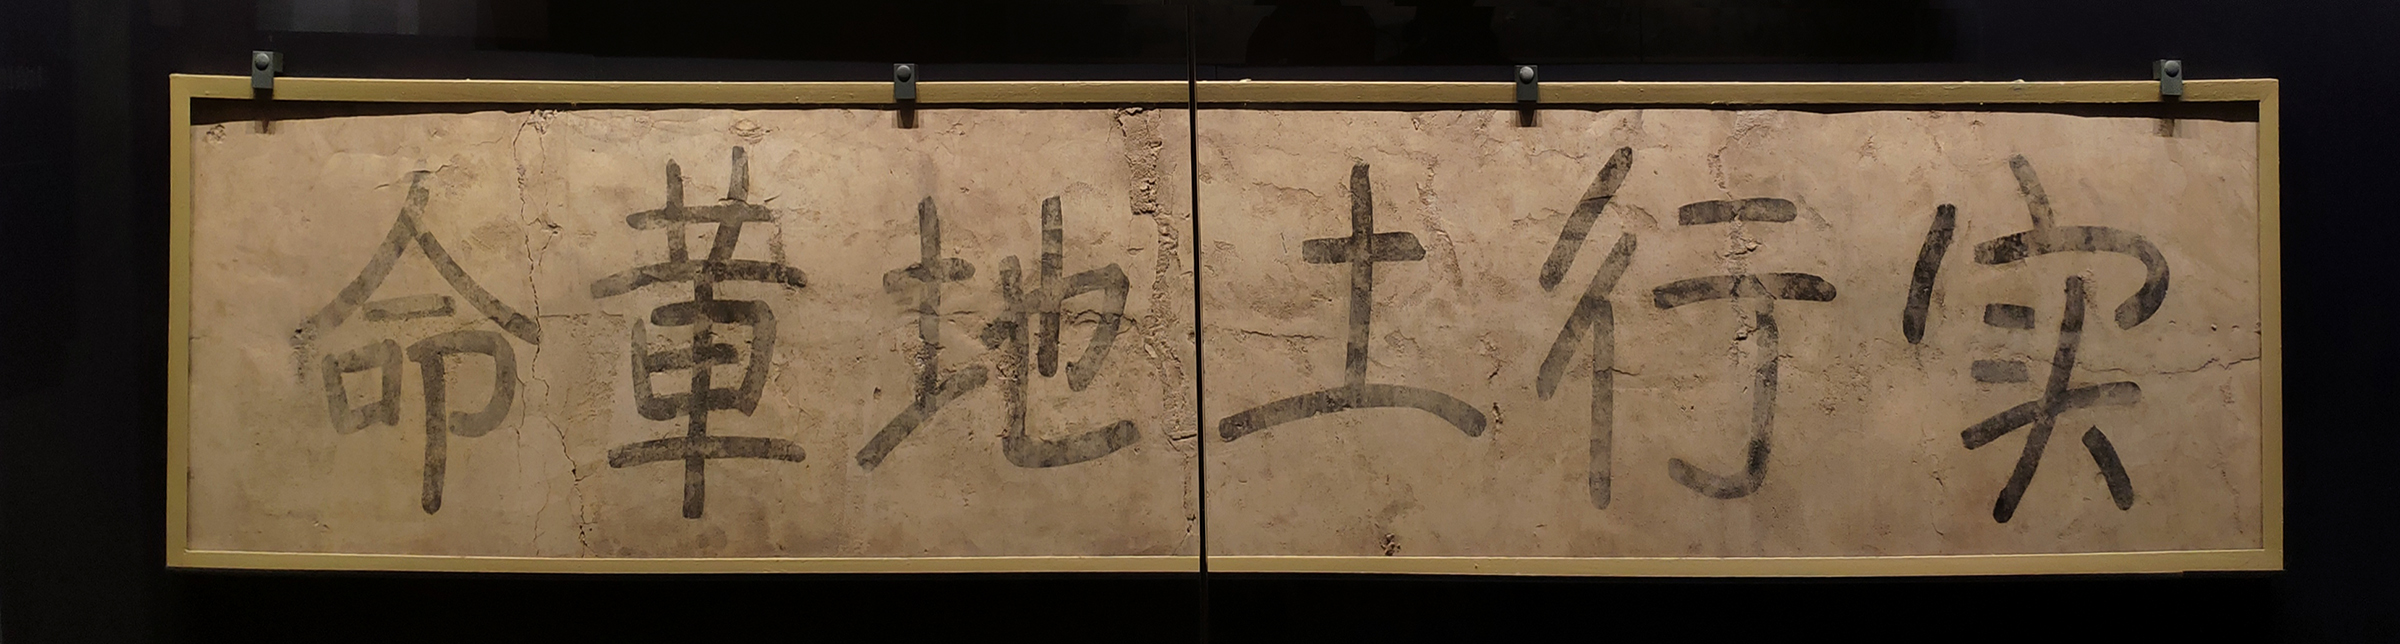 实行土地革命